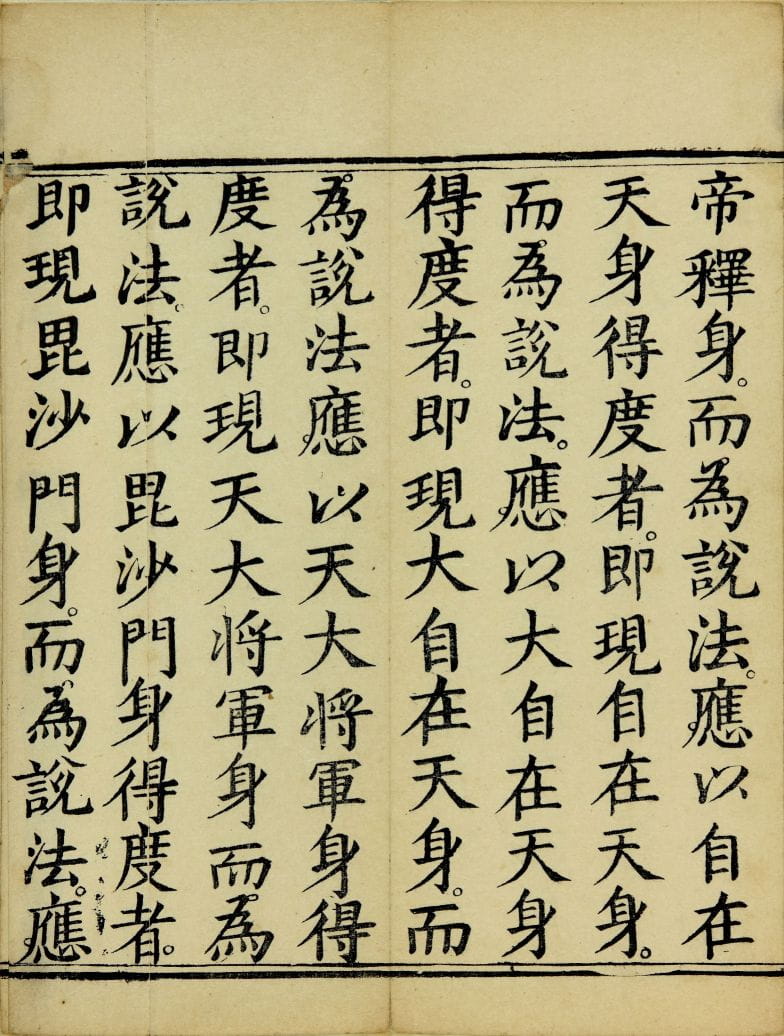 帝釋身。而為說法。應以自在
天身得度者。即現自在天身。
而為說法。應以大自在天身
得度者。即現大自在天身。而
為說法應以天大將軍身得
度者。即現天大將軍身而為
說法。應以毘沙門身得度者。
即現毘沙門身。而為說法。應